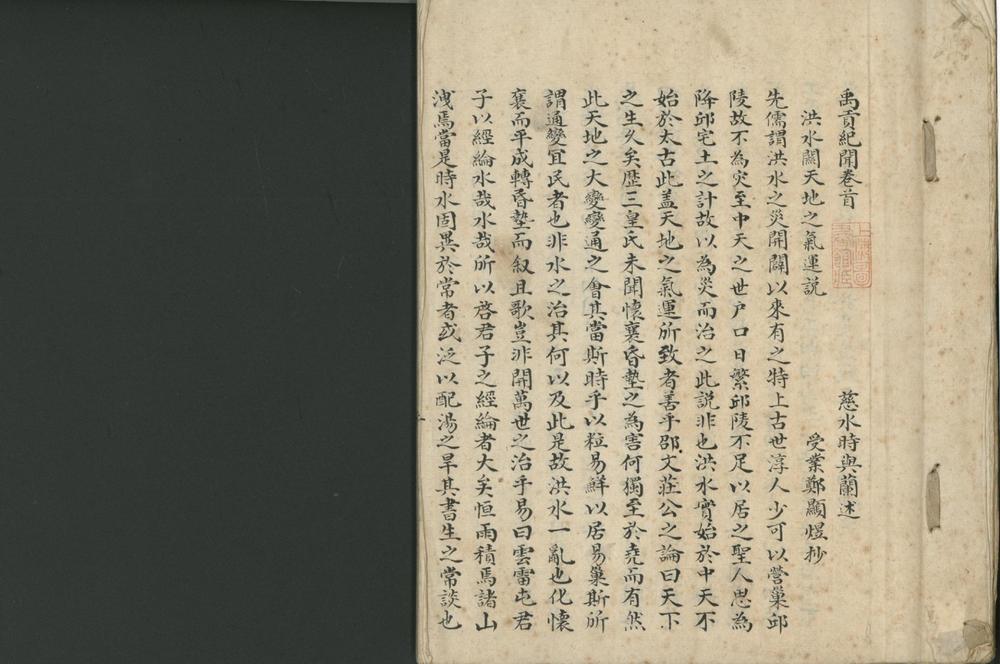 禹貢紀聞卷首
慈水時與蘭述
洪水關天地之氣運説
受業鄭顯煜抄
先儒謂洪水之災開闢以來有之特上古世淳人少可以營巢邱
陵故不為灾至中天之世户口日繁邱陵不足以居之聖人思為
降邱宅土之計故以為災而治之此説非也洪水實始於中天不
始於太古此盖天地之氣運所致者善乎邵文莊公之論曰天下
之生久矣歷三皇氏未聞懷襄昏墊之為害何獨至於堯而有然
此天地之大變變通之會其當斯時乎以粒易鮮以居易巢斯所
謂通變宜民者也非水之治其何以及此是故洪水一亂也化懷
襄而平成轉昏墊而叙且歌豈非開萬世之治乎易曰雲雷屯君
子以經綸水哉水哉所以啓君子之經綸者大矣恒雨積焉諸山
洩焉當是時水固異於常者或泛以配湯之旱其書生之常談也